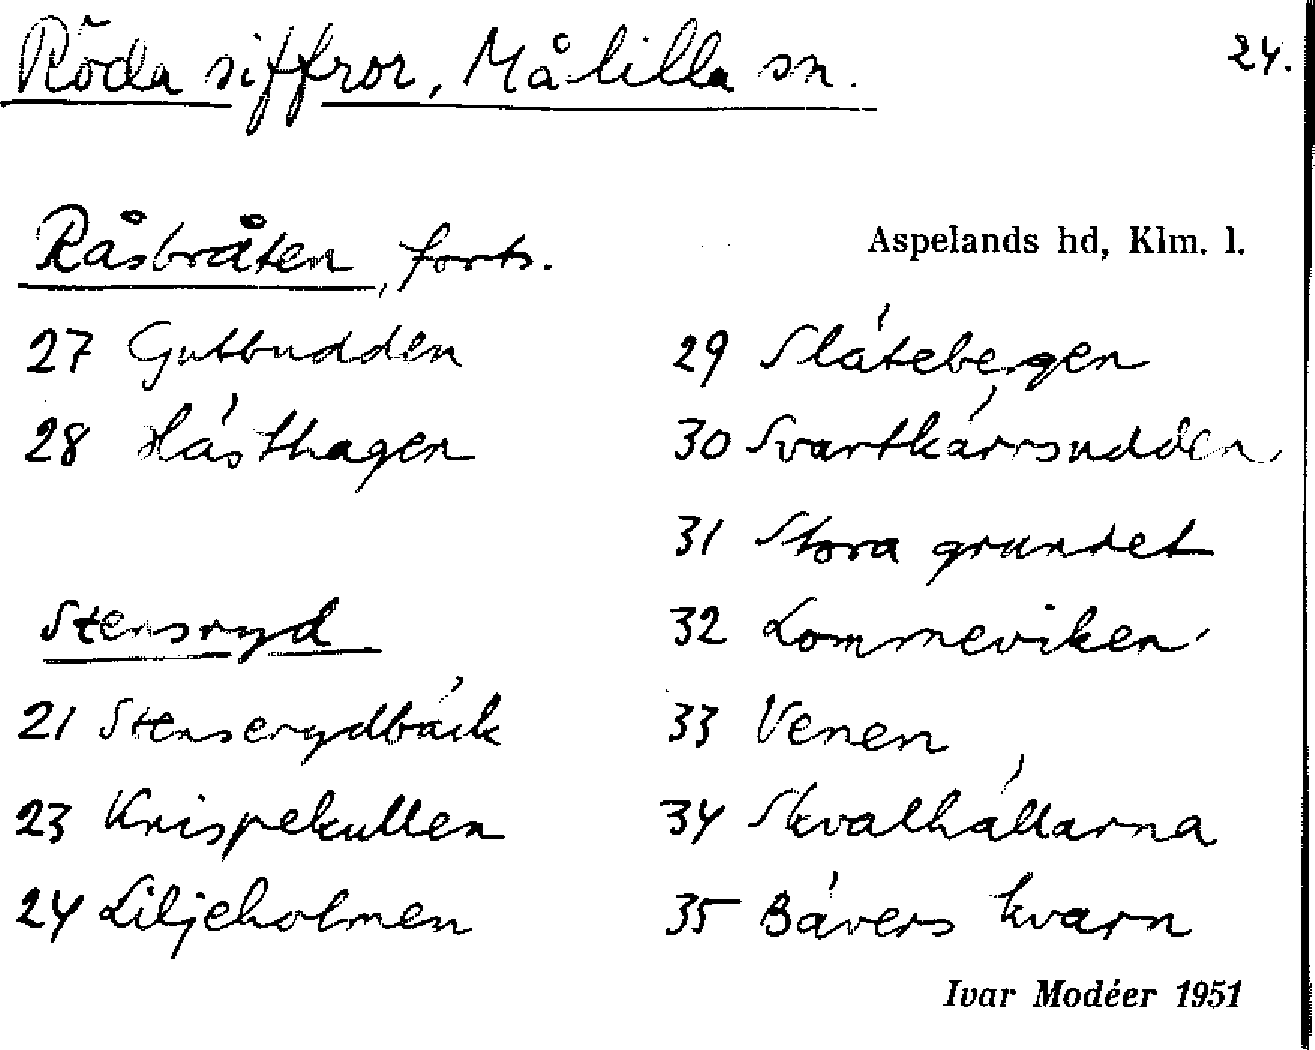 Röda siffror, Målilla sn.
24.
Råsbråten, forts.
Aspelands hd, Klm. l.
27 Gubbudden
28 Hästhagen
Stensryd
21 Stenserydbäck
23 Krispekullen
24 Liljeholmen
29 Slätebergen
30 Svartkärrsudden
31 Stora grundet
32 Lommeviken
33 Venen
34 Skvalhällarna
35 Bävers kvarn
Ivar Modéer 1951